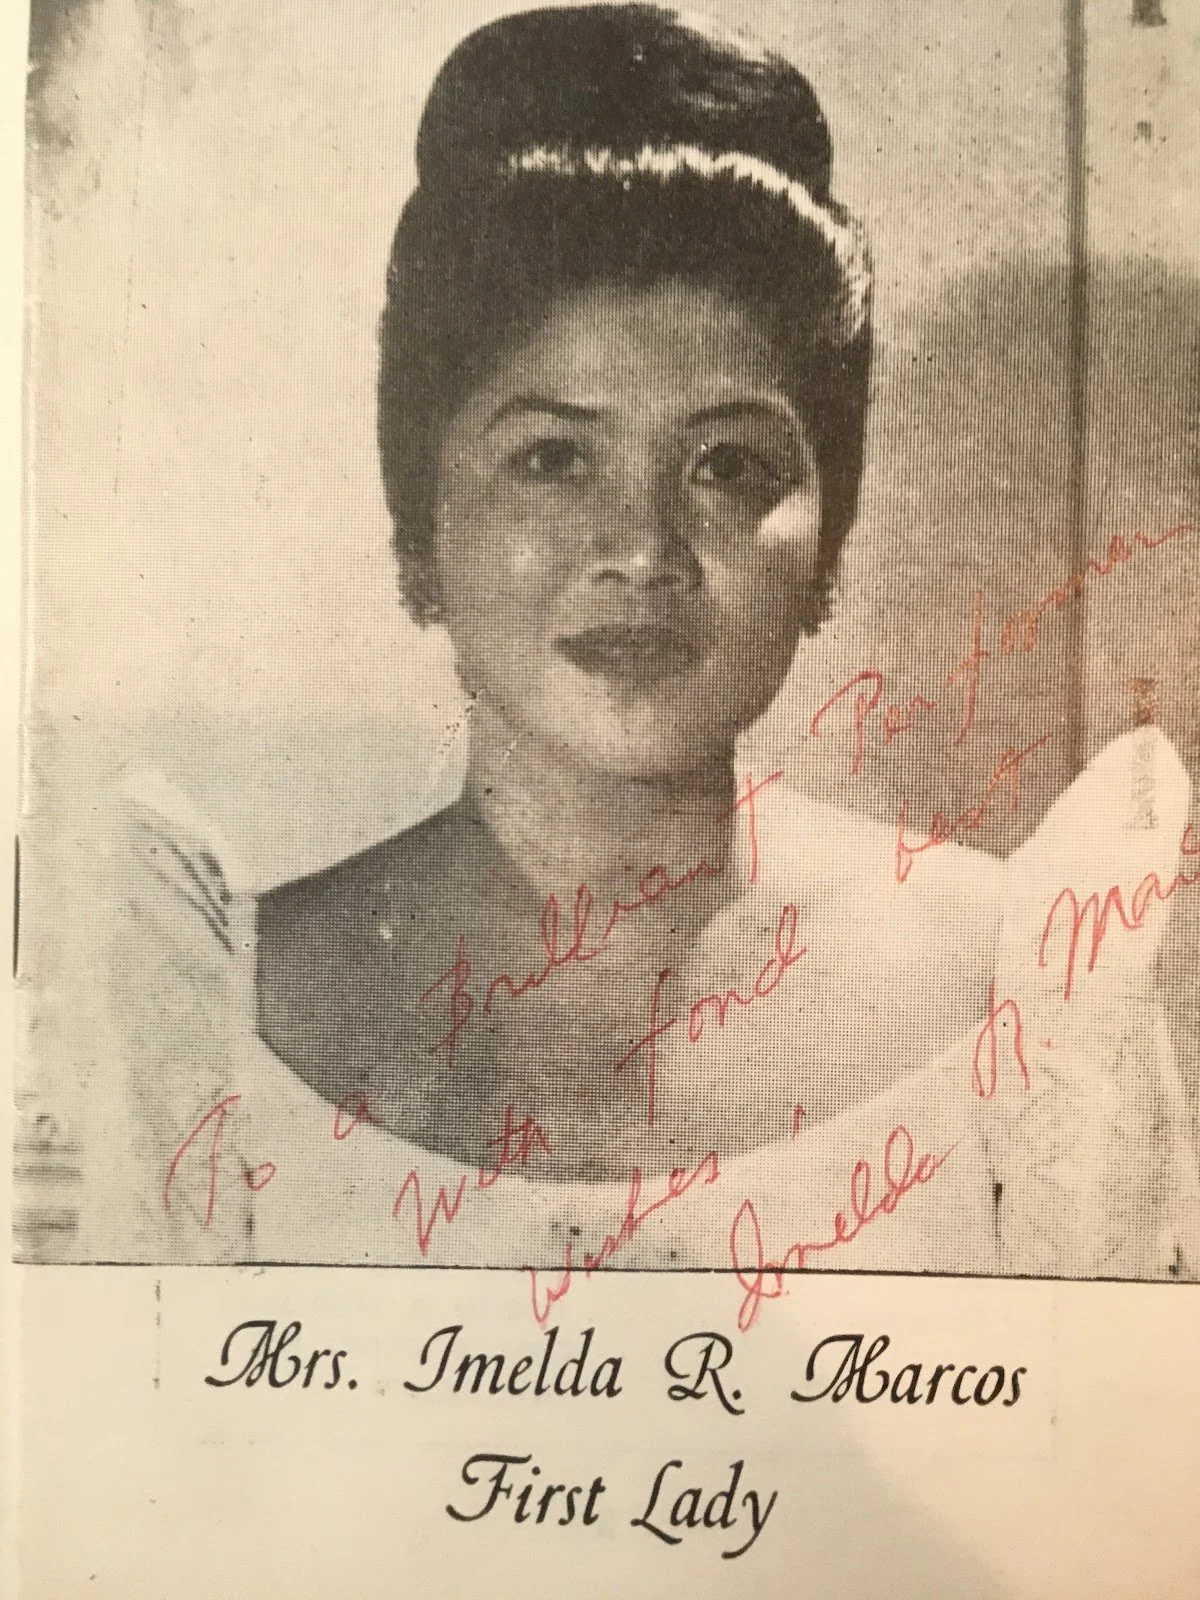 To a Brilliant Performer
With fond best
Wishes,
Imelda R. Marc
Mrs. Imelda R. Marcos
First Lady